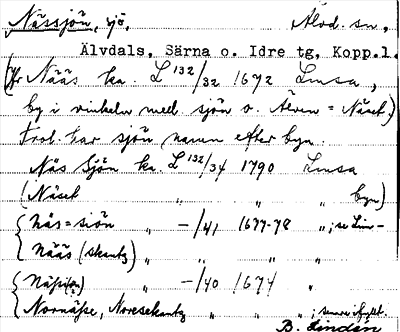 Nässjön, sjö. Älvd. sn,
Älvdals, Särna o. Idre tg, Kopp.l.
(Jfr Nääs ka. L 132/32 1672 Lmsa,
by i vinkeln mell. sjön o. Älven = Näset.)
Trol. har sjön namn efter byn.
Näs Sjön ka. L 132/34 1790 Lmsa
(Näset " " " by)
{ Näs=siön " -/41 1677-78 "; se Lin-
Nääs (skantz) " " " "
{ Näs " -/40 1674 "
Nornäse, Noresekantz " " " "; senare ifyllt.
B. Lindén